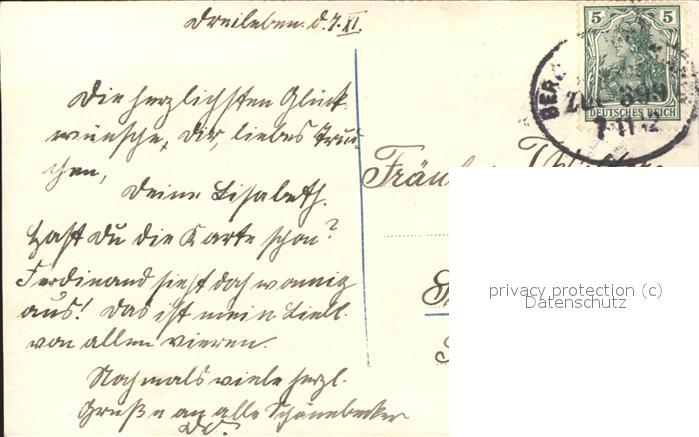 Dreileben d. 7. XI.
Die herzlichsten Glück-
wünsche, Dir, liebes Truu-
chen,
Deine Lisabeth.
Hast Du die Karte schon?
Ferdinand sieht doch wonnig
aus! Das ist mein Liebl.
von allen vieren.
Nochmals viele herzl.
Grüße an alle Schönebecker
D. O.
5 5
DEUTSCHES REICH
BER
ZUG 899
7 11 12
Fräulein
privacy protection (c)
Datenschutz